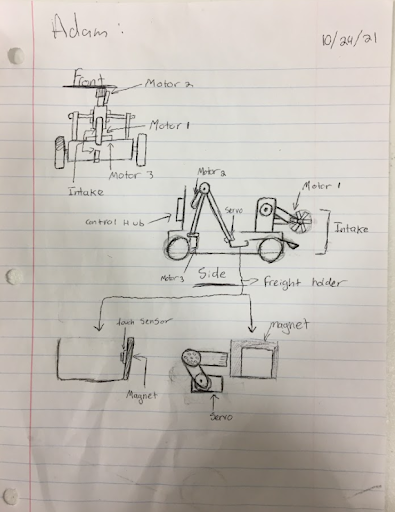 Adam:
10/24/21
Front
Motor 2
Motor 1
Motor 3
Intake
Motor 2
Motor 1
Servo
Control Hub
Intake
Motor 3
Side
Freight holder
Sensor
Magnet
Magnet
Servo